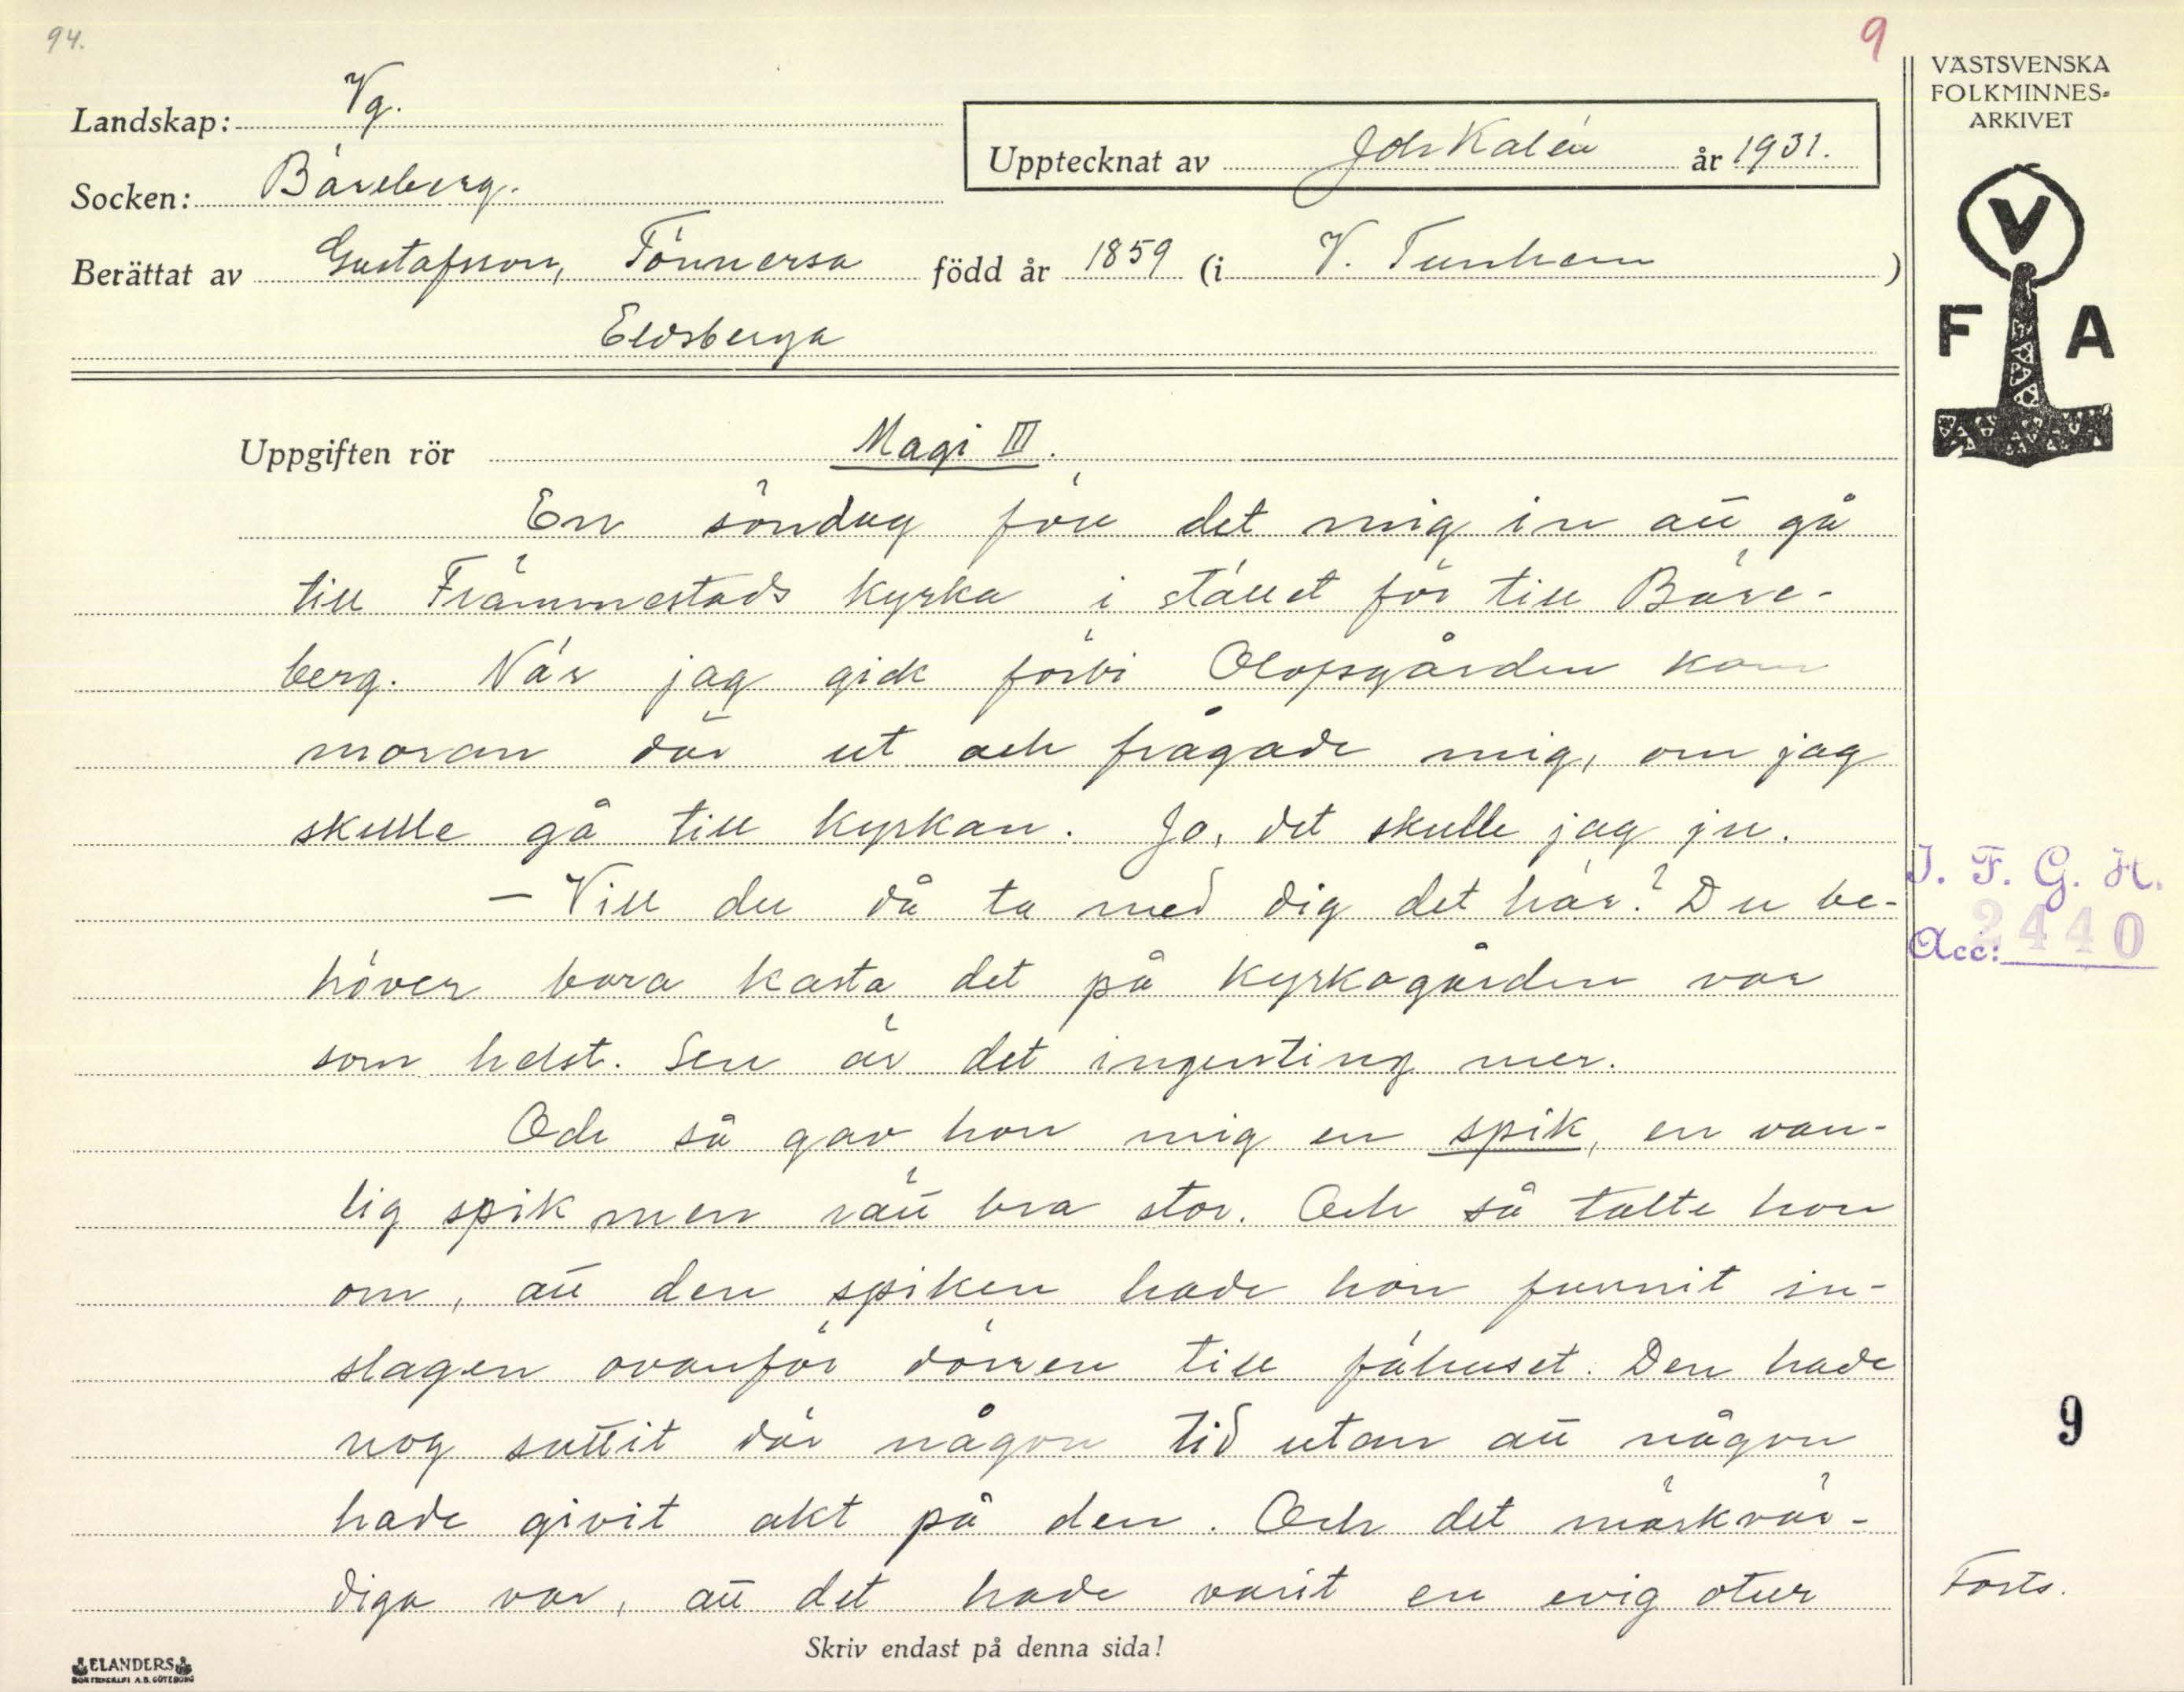 94.
9
VÄSTSVENSKA
FOLKMINNES-
ARKIVET
Landskap: Vg.
Upptecknat av Joh Kalén år 1931.
Socken: Bäreberg.
Berättat av Gustafsson, Tönnersa född år 1859 (i V. Tunhem )
Eldsberga
V
F A
Uppgiften rör Magi III.
En söndag föll det mig in att gå
till Främmestads kyrka i stället för till Bäre-
berg. När jag gick förbi Olofsgården kom
moran där ut och frågade mig, om jag
skulle gå till kyrkan. Jo, det skulle jag ju.
- Vill du då ta med dig det här? Du be-
höver bara kasta det på kyrkogården var
som helst. Sen är det ingenting mer.
Och så gav hon mig en spik, en van-
lig spik men rätt bra stor. Och så talte hon
om, att den spiken hade hon funnit in-
slagen ovanför dörren till fähuset. Den hade
nog suttit där någon tid utan att någon
hade givit akt på den. Och det märkvär-
diga var, att det hade varit en evig otur
I. F. G. H.
Acc: 2440
9
Forts.
Skriv endast på denna sida!
ELANDERS
BOKTRYCKERI A.B. GÖTEBORG